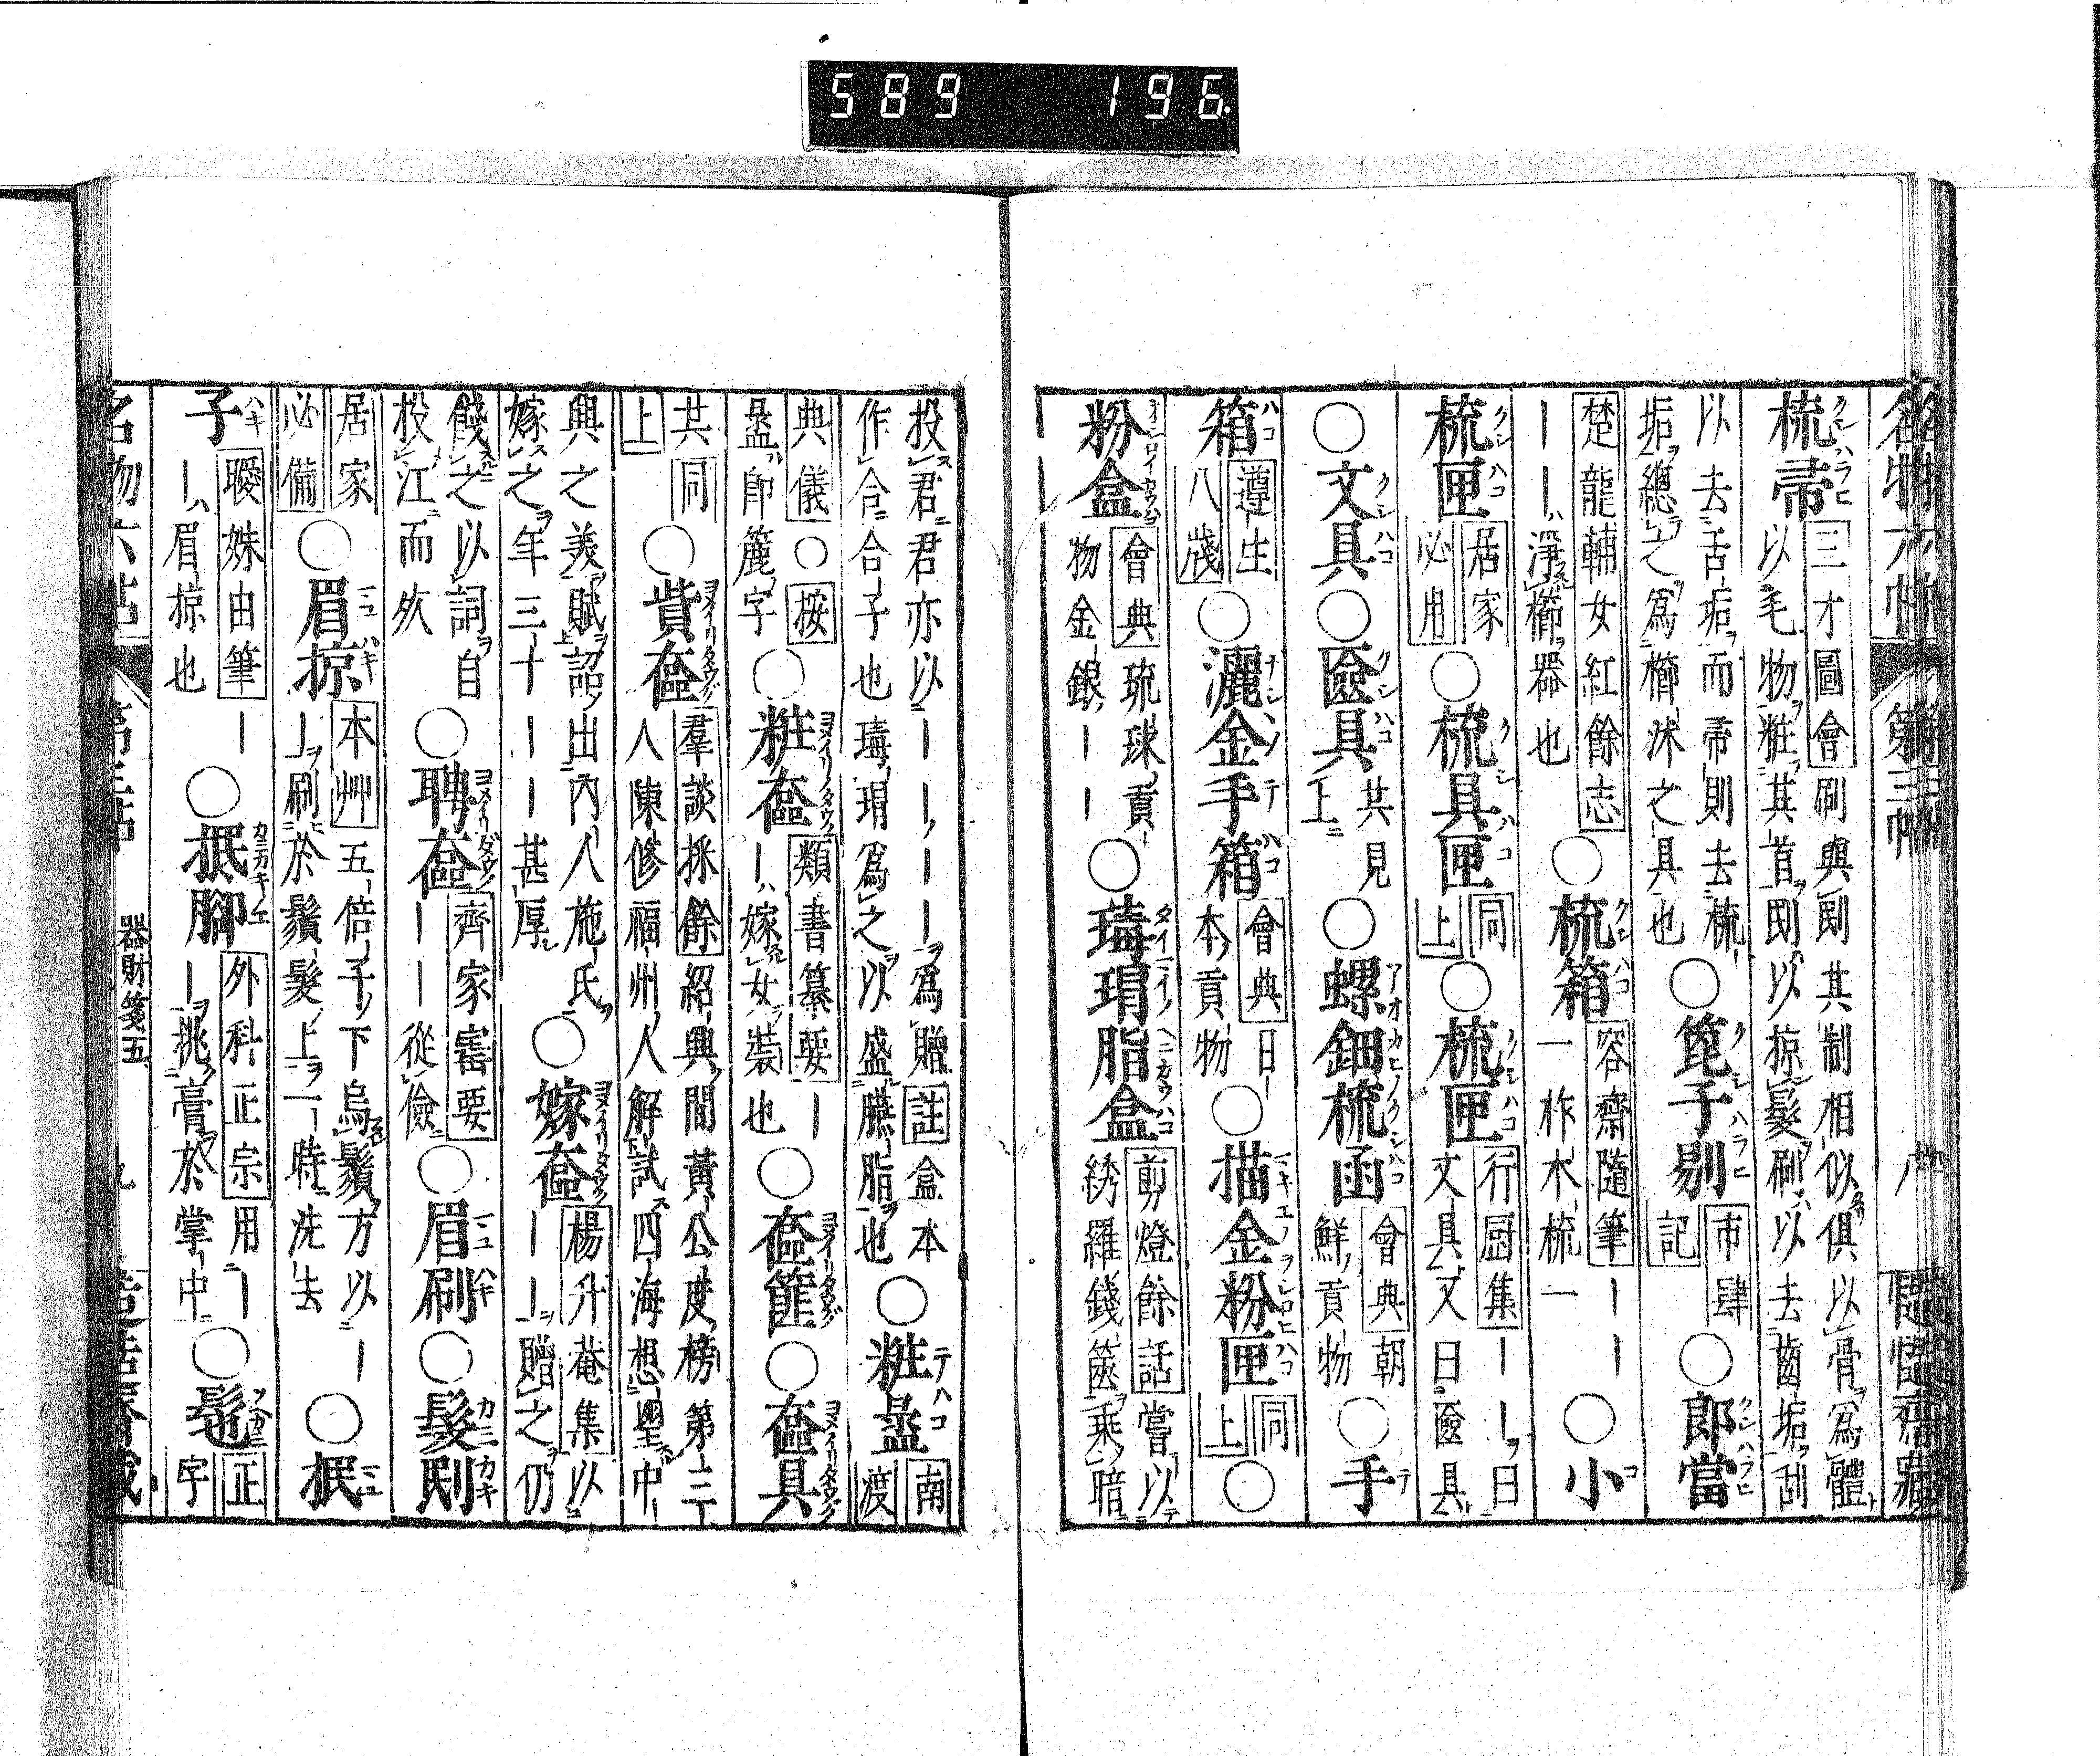 589 196.
名物六帖 第三帖
梳帚 三才圖會 刷與刷其制相似俱以骨爲體
以毛物粧其首刷以掠髮刷以去齒垢刮
以去舌垢而帚則去梳
垢總之爲櫛沐之具也 ○篦子剔 市肆記 ○郎當
楚龍輔女紅餘志
淨櫛器也 ○梳箱 容齋隨筆 一柞木梳一 ○小
梳匣 居家必用 ○梳具匣 同上 ○梳匣 行厨集 曰文具又曰匳具
○文具 ○匳具 共見上 ○螺鈿梳函 會典 朝鮮貢物 ○手
箱 遵生八牋 ○灑金手箱 會典 日本貢物 ○描金粉匣 同上 ○
粉盒 會典 琉球貢物金銀 ○瑇瑁脂盒 剪燈餘話 當以綉羅錢篋乘暗
投君君亦以爲贈 註 盒本
作合合子也瑇瑁爲之以盛臙脂也 ○粧盝 南渡
典儀 ○按盝卽簏字 ○粧奩 類書纂要 嫁女裝也 ○奩篚 ○奩具
共同上 ○貲奩 羣談採餘 紹興間黃公度榜第三
人陳修福州人解試四海想望中
興之美賦詔出內人施氏
嫁之年三十甚厚 ○嫁奩 楊升菴集 以贈之仍
餞之以詞自
投江而歿 ○聘奩 齊家寶要 從儉 ○眉刷 ○髮刷
居家必備 ○眉掠 本艸 五倍子下烏鬚方以
刷於鬚髮上一時洗去 ○抿
子 曖姝由筆 眉掠也 ○抿脚 外科正宗 用挑膏於掌中 ○髢 正字
名物六帖 第三帖 器財箋五 九